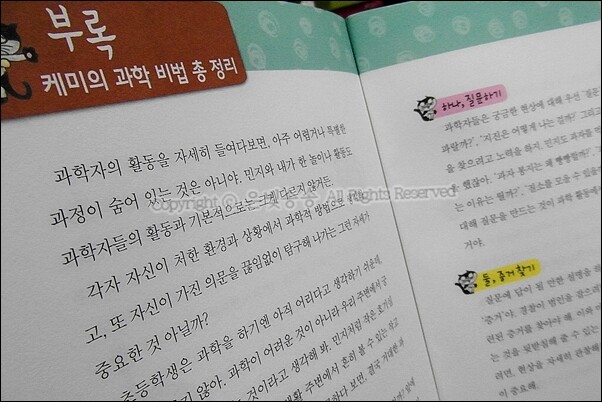 부록
케미의 과학 비법 총 정리
과학자의 활동을 자세히 들여다보면, 아주 어렵거나 특별한
과정이 숨어 있는 것은 아니야. 민지와 내가 한 놀이나 활동도
과학자들의 활동과 기본적으로는 크게 다르지 않거든.
각자 자신이 처한 환경과 상황에서 과학적 방법으로
고, 또 자신이 가진 의문을 끊임없이 탐구해 나가는 그런 자세가
중요한 것 아닐까?
초등학생은 과학을 하기엔 아직 어리다고 생각하기 쉬운데,
지 않아. 과학이 어려운 것이 아니라 우리 주변에서 궁
것이라고 생각해 봐. 민지처럼 작은 호기심
생활 주변에서 흔히 볼 수 있는 작고
하나 보면, 결국 거대한 과
Copyright ⓒ All Rights Reserved
하나, 질문하기
과학자들은 궁금한 현상에 대해 우선 '질문
파랄까?', '지진은 어떻게 나는 걸까?' 그리고
을 찾으려고 노력을 하지. 민지도 과자를 만
했잖아. '과자 봉지는 왜 빵빵할까?', '
는 이유는 뭘까?', '질소를 모을 수 있을까
대해 질문을 만드는 것이 과학 활동에서
거야.
둘, 증거 찾기
질문에 답이 될 만한 설명을 하
'증거'야. 경찰이 범인을 잡으려
련된 증거를 찾아야 해. 이와
는 것을 뒷받침해 줄 수 있는
려면, 현상을 자세히 관찰해
이 중요해.